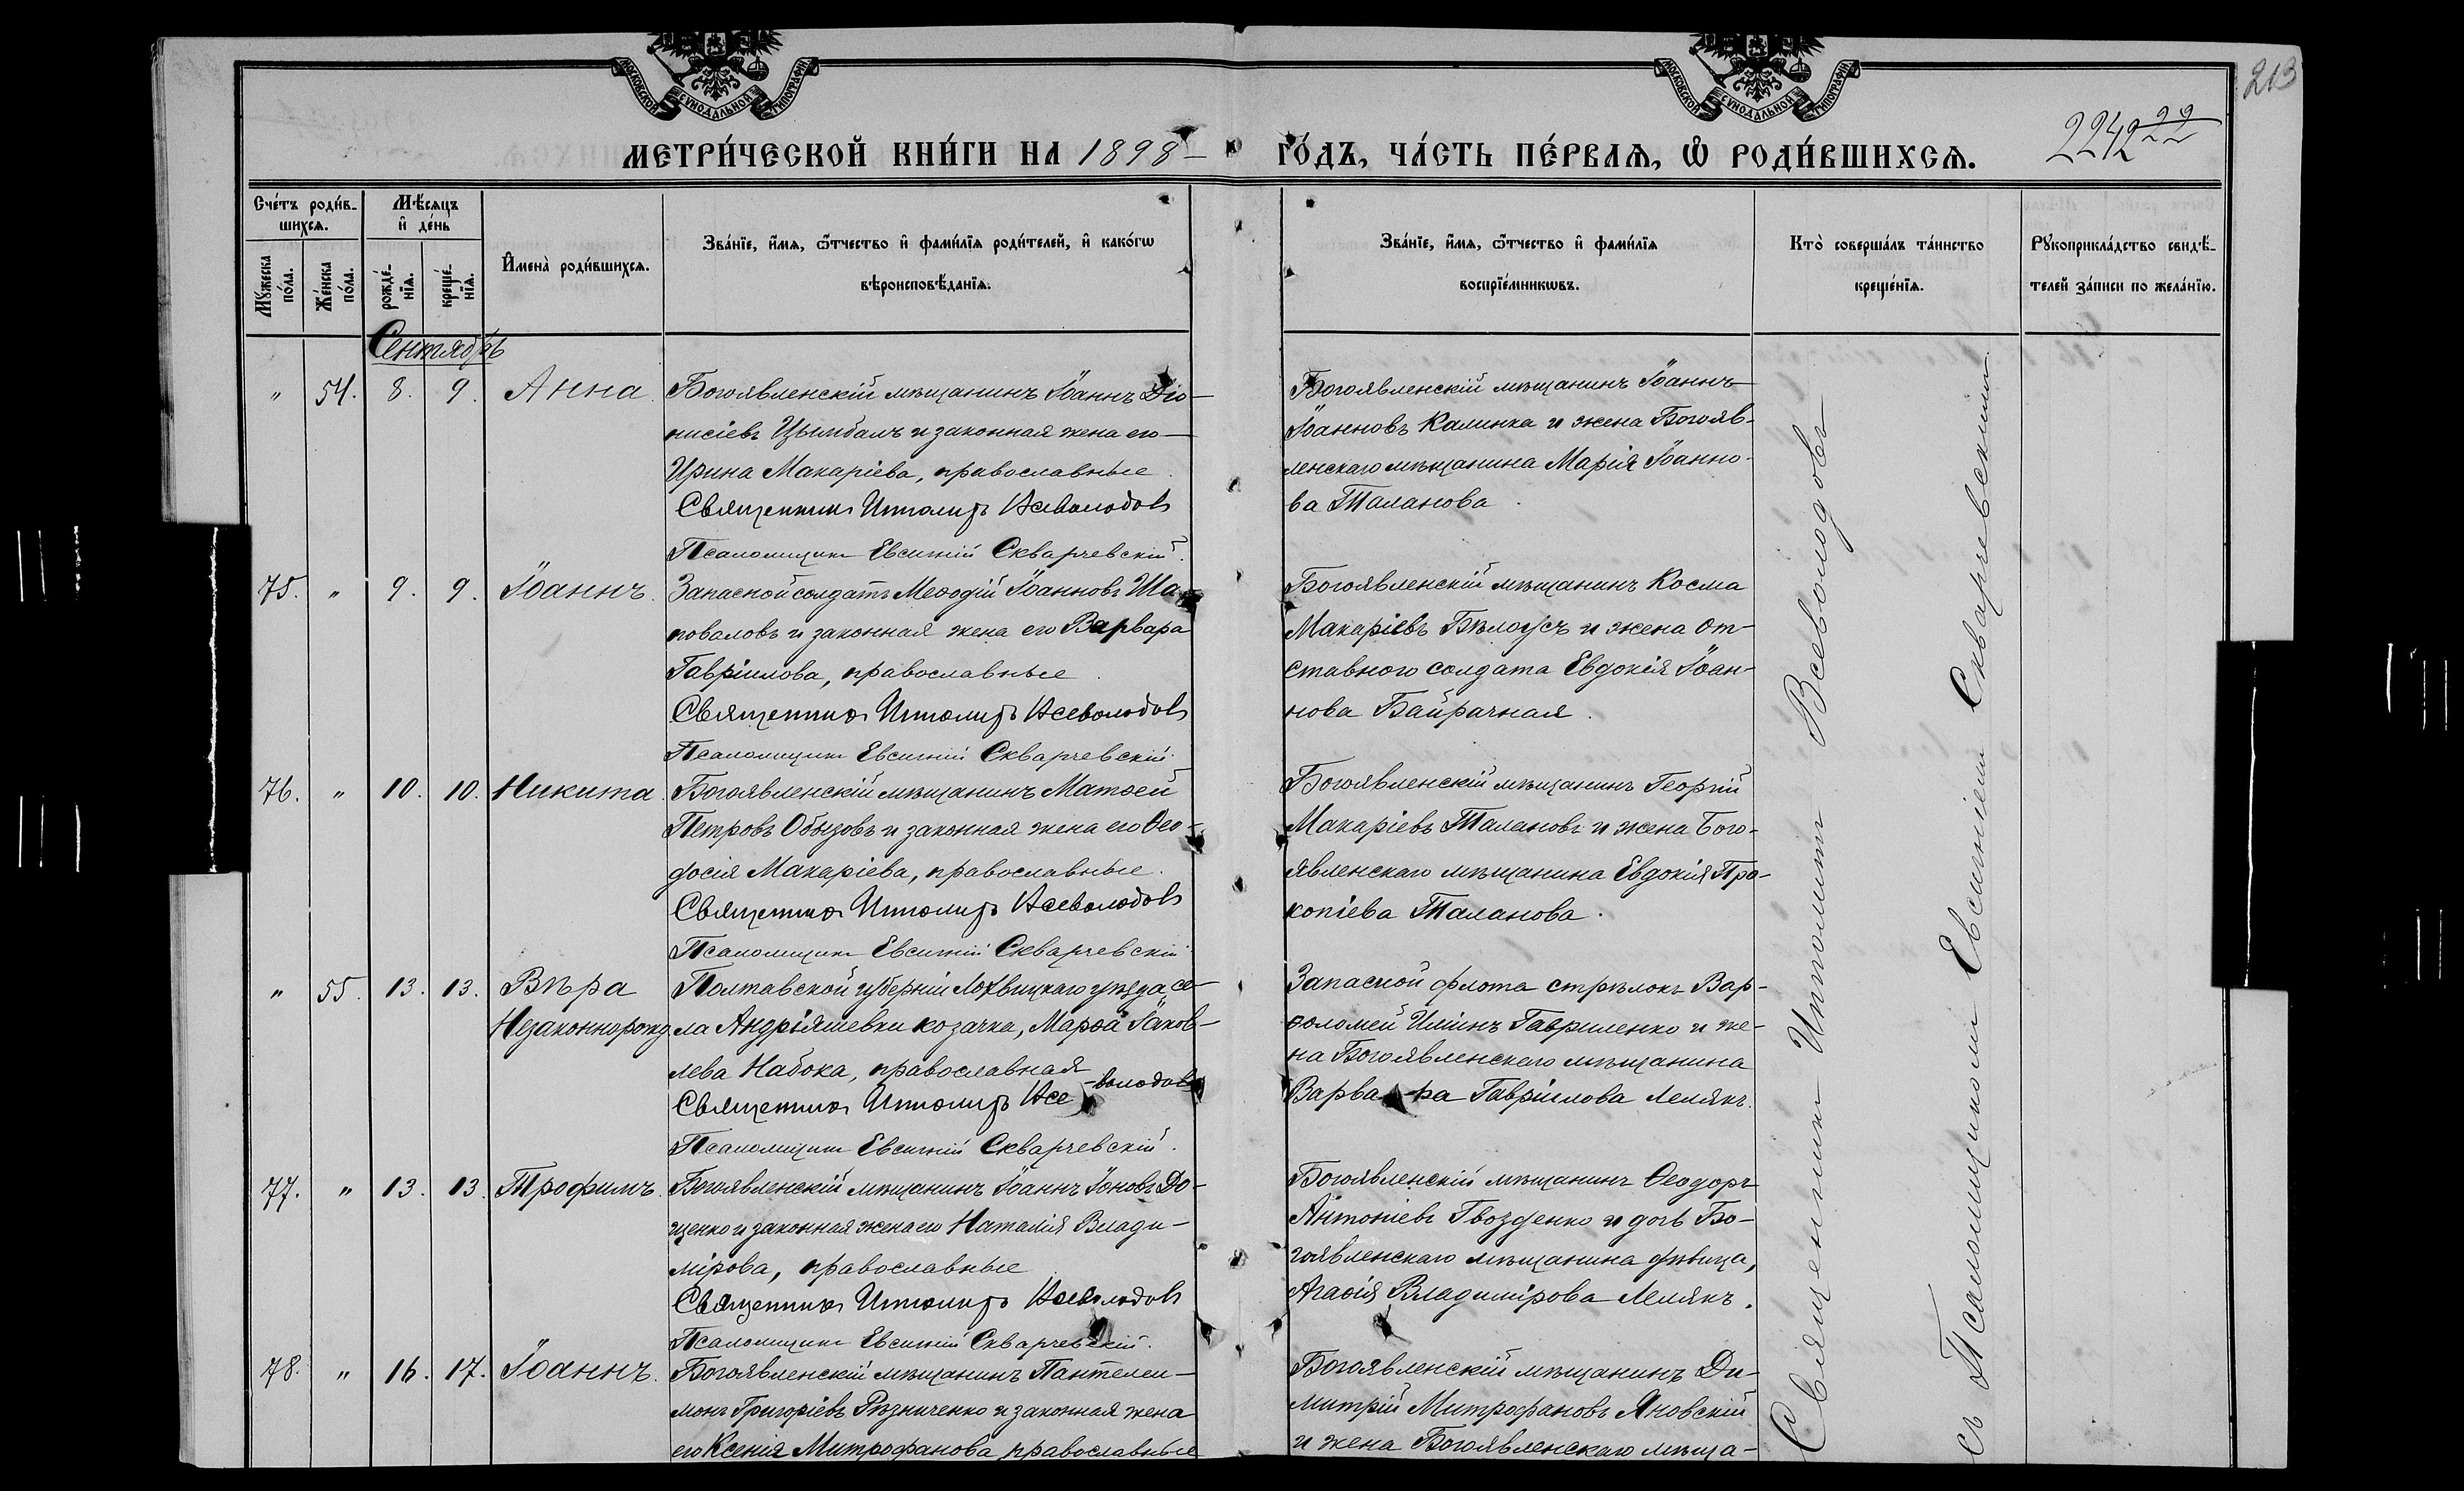 МОСКОВСКОЙ СѴНОДАЛЬНОЙ ТИПОГРАФІИ
МОСКОВСКОЙ СѴНОДАЛЬНОЙ ТИПОГРАФІИ
213
МЕТРИ́ЧЕСКОЙ КНИ́ГИ НА 1898 – ГО́ДЪ, ЧА́СТЬ ПЕ́РВАѦ, Ѡ҆ РОДИ́ВШИХСѦ.
224222
Сче́тъ роди́в-
шихсѧ.
Мѣ́сѧцъ
и҆ де́нь
Мꙋ́жеска
по́ла.
Же́нска
по́ла.
рожде́-
нїѧ.
креще́-
нїѧ.
И҆мена̀ роди́вшихсѧ.
Зва́нїе, и҆́мѧ, ѻ҆́тчество и҆ фами́лїѧ роди́телей, и҆ како́гѡ
вѣроисповѣ́данїѧ.
Зва́нїе, и҆́мѧ, ѻ҆́тчество и҆ фами́лїѧ
воспрїе́мникѡвъ.
Кто̀ соверша́лъ та́инство
креще́нїѧ.
Рꙋкоприкла́дство свидѣ́-
телей за́писи по жела́нїю.
Сентябрь
" 54. 8. 9. Анна.
Богоявленскій мѣщанинъ Іоаннъ Діо-
нисіевъ Цымбалъ и законная жена его
Ирина Макаріева, православные.
Священникъ Ипполитъ Всеволодовъ
Псаломщикъ Евсигній Скварчевскій.
Богоявленскій мѣщанинъ Іоаннъ
Іоанновъ Калинка и жена Богояв-
ленскаго мѣщанина Марія Іоанно-
ва Таланова.
75. " 9. 9. Іоаннъ.
Запасной солдатъ Меѳодій Іоанновъ Ша-
поваловъ и законная жена его Варвара
Гавріилова, православные.
Священникъ Ипполитъ Всеволодовъ
Псаломщикъ Евсигній Скварчевскій.
Богоявленскій мѣщанинъ Косма
Макаріевъ Бѣлоусъ и жена от-
ставного солдата Евдокія Іоан-
нова Байрачная.
76. " 10. 10. Никита.
Богоявленскій мѣщанинъ Матѳей
Петровъ Обызовъ и законная жена его Ѳео-
досія Макаріева, православные.
Священникъ Ипполитъ Всеволодовъ
Псаломщикъ Евсигній Скварчевскій
Богоявленскій мѣщанинъ Георгій
Макаріевъ Талановъ и жена Бого-
явленскаго мѣщанина Евдокія Про-
копіева Таланова.
" 55. 13. 13. Вѣра
Незаконнорожд.
Полтавской губерніи Лохвицкаго уѣзда, се-
ла Андріяшевки козачка, Марѳа Іаков-
лева Набока, православная
Священникъ Ипполитъ Все-володовъ
Псаломщикъ Евсигній Скварчевскій.
Запасной флота стрѣлокъ Вар-
ѳоломей Иліинъ Гавриленко и же-
на Богоявленскаго мѣщанина
Варвара Гавріилова Лемякъ.
77. " 13. 13. Трофимъ.
Богоявленскій мѣщанинъ Іоаннъ Іоновъ До-
щенко и законная жена его Наталія Влади-
мірова, православные
Священникъ Ипполитъ Всеволодовъ
Псаломщикъ Евсигній Скварчевскій.
Богоявленскій мѣщанинъ Ѳеодоръ
Антоніевъ Гвозденко и дочь Бо-
гоявленскаго мѣщанина дѣвица,
Агаѳія Владимірова Лемякъ.
78. " 16. 17. Іоаннъ.
Богоявленскій мѣщанинъ Пантелеи-
монъ Григоріевъ Рѣзниченко и законная жена
его Ксенія Митрофанова, православные
Богоявленскій мѣщанинъ Ди-
митрій Митрофановъ Яновскій
и жена Богоявленскаго мѣща-
Священникъ Ипполитъ Всеволодовъ
съ Псаломщикомъ Евсигніемъ Скварчевскимъ